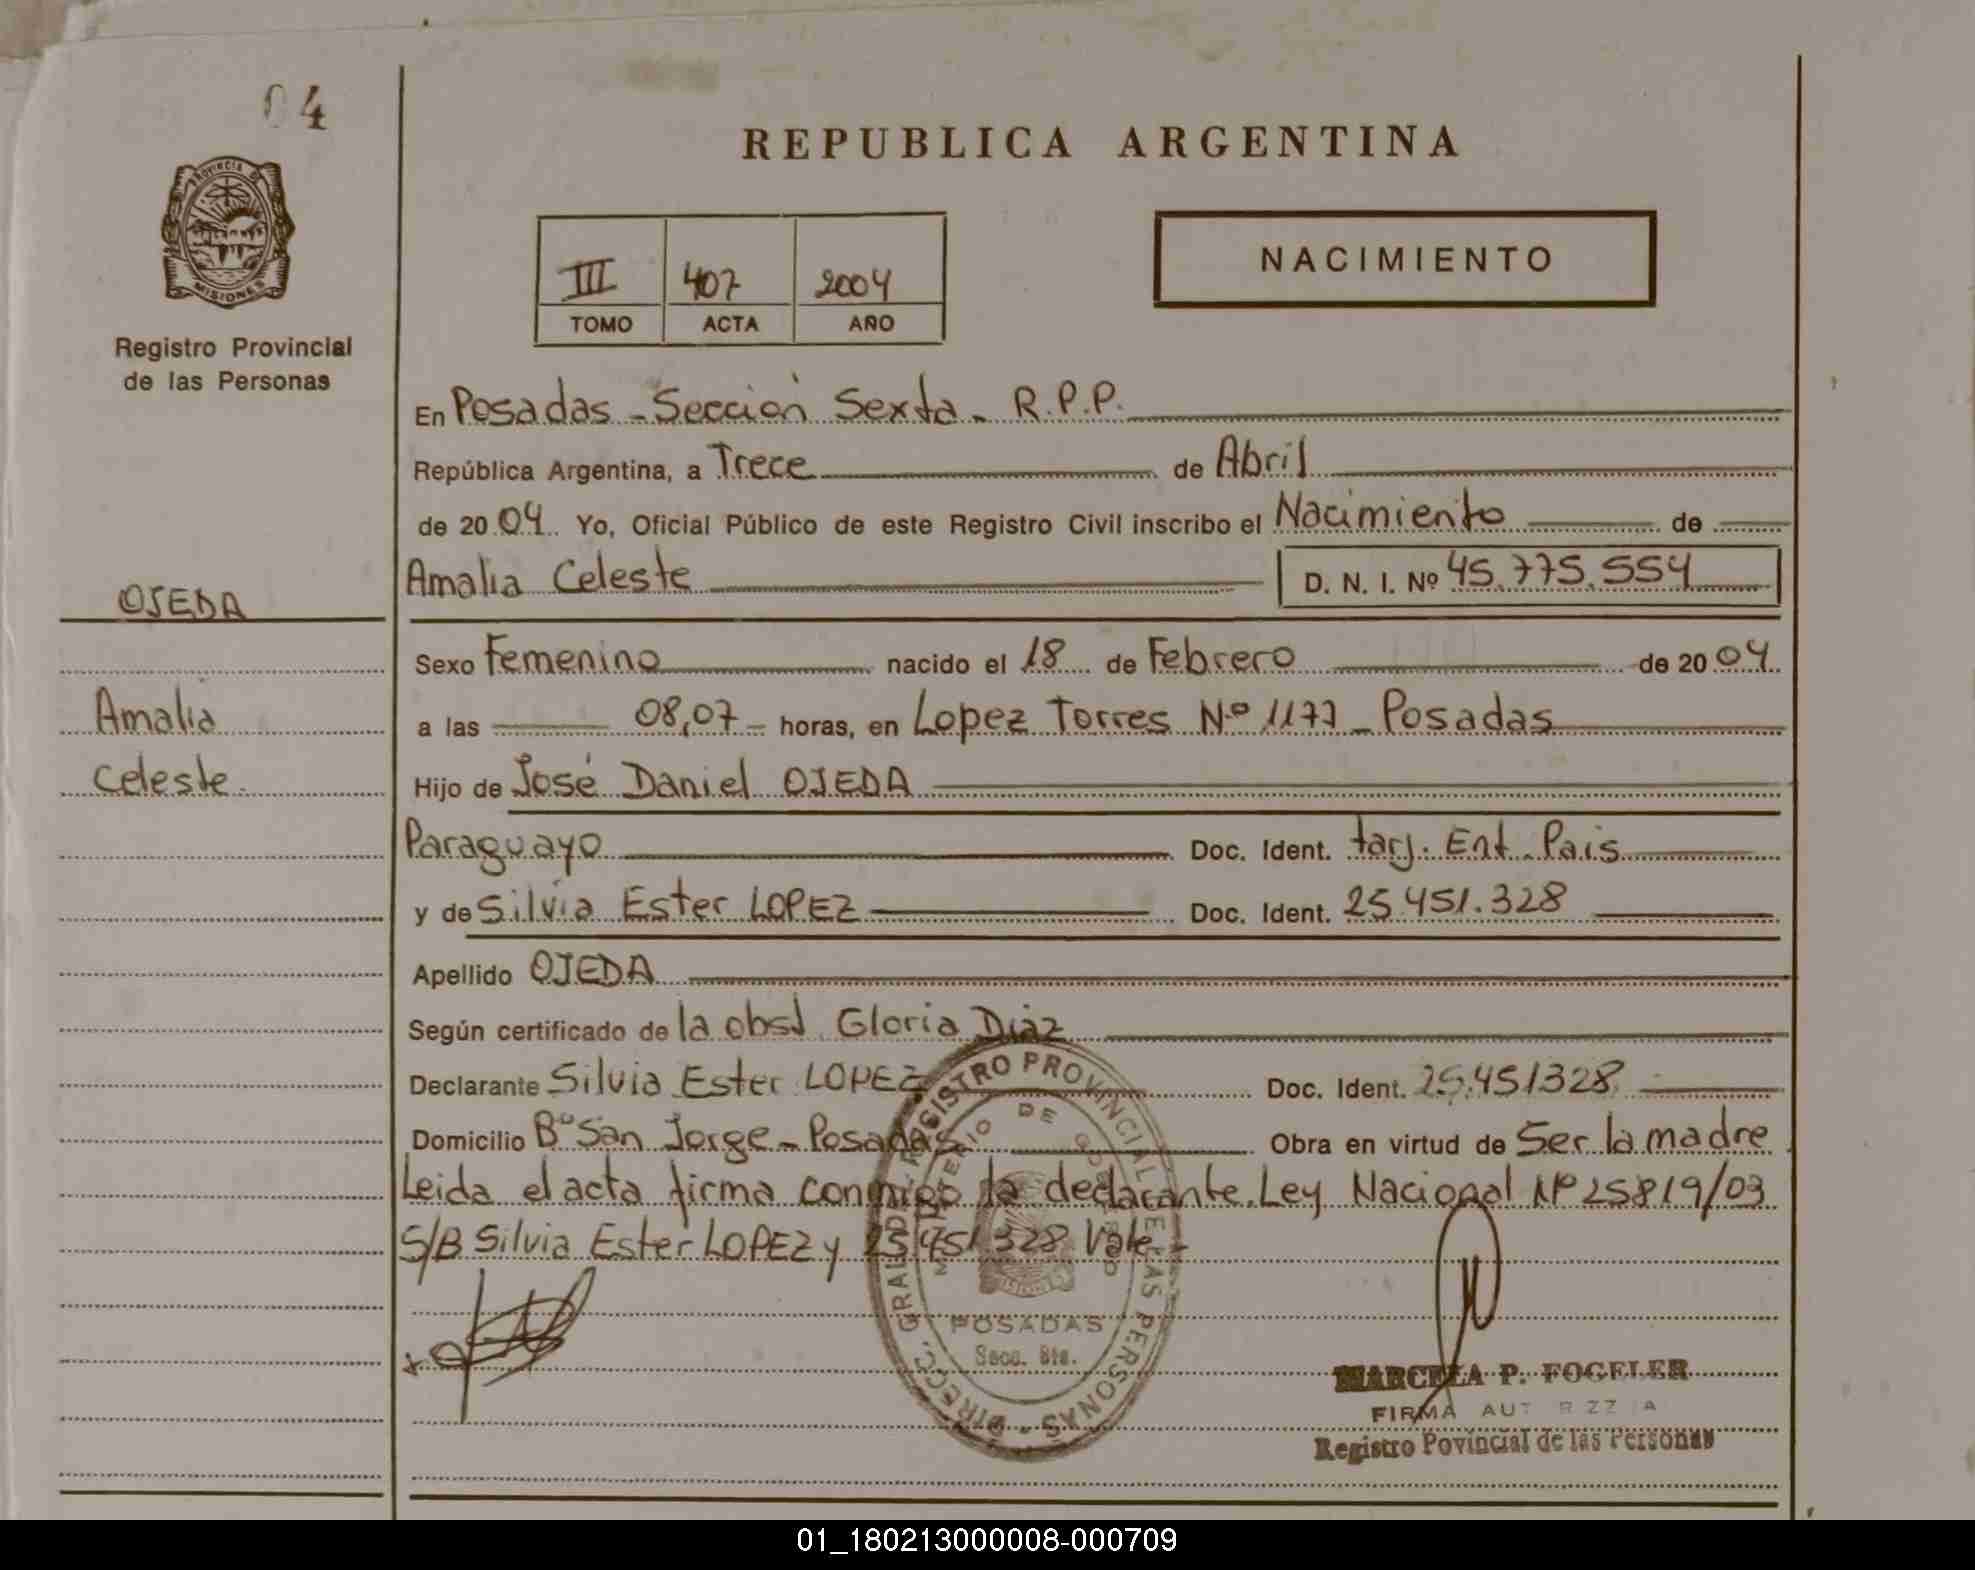 04
PROVINCIA DE
MISIONES
Registro Provincial
de las Personas
REPUBLICA ARGENTINA
III 407 2004
TOMO ACTA AÑO
NACIMIENTO
En Posadas - Sección Sexta - R.P.P.
República Argentina, a Trece de Abril
de 2004 Yo, Oficial Público de este Registro Civil inscribo el Nacimiento de
Amalia Celeste D. N. I. Nº 45.775.554
OJEDA
Sexo Femenino nacido el 18 de Febrero de 2004
Amalia
a las 08,07 horas, en Lopez Torres Nº 1177 - Posadas
Celeste
Hijo de José Daniel OJEDA
Paraguayo Doc. Ident. tarj. Ent. Pais
y de Silvia Ester LOPEZ Doc. Ident. 25.451.328
Apellido OJEDA
Según certificado de la obst. Gloria Diaz
Declarante Silvia Ester LOPEZ Doc. Ident. 25.451328
Domicilio Bº San Jorge - Posadas Obra en virtud de Ser la madre
Leida el acta firma conmigo la declarante. Ley Nacional Nº 25819/03
S/B Silvia Ester LOPEZ y 25.451.328 Vale -
DIRECC. GRAL. DEL REGISTRO PROVINCIAL DE LAS PERSONAS
MINISTERIO DE GOBIERNO
MISIONES
POSADAS
Secc. 6ta.
MARCELA P. FOGELER
FIRMA AUTORIZZADA
Registro Povincial de las Personas
01_180213000008-000709